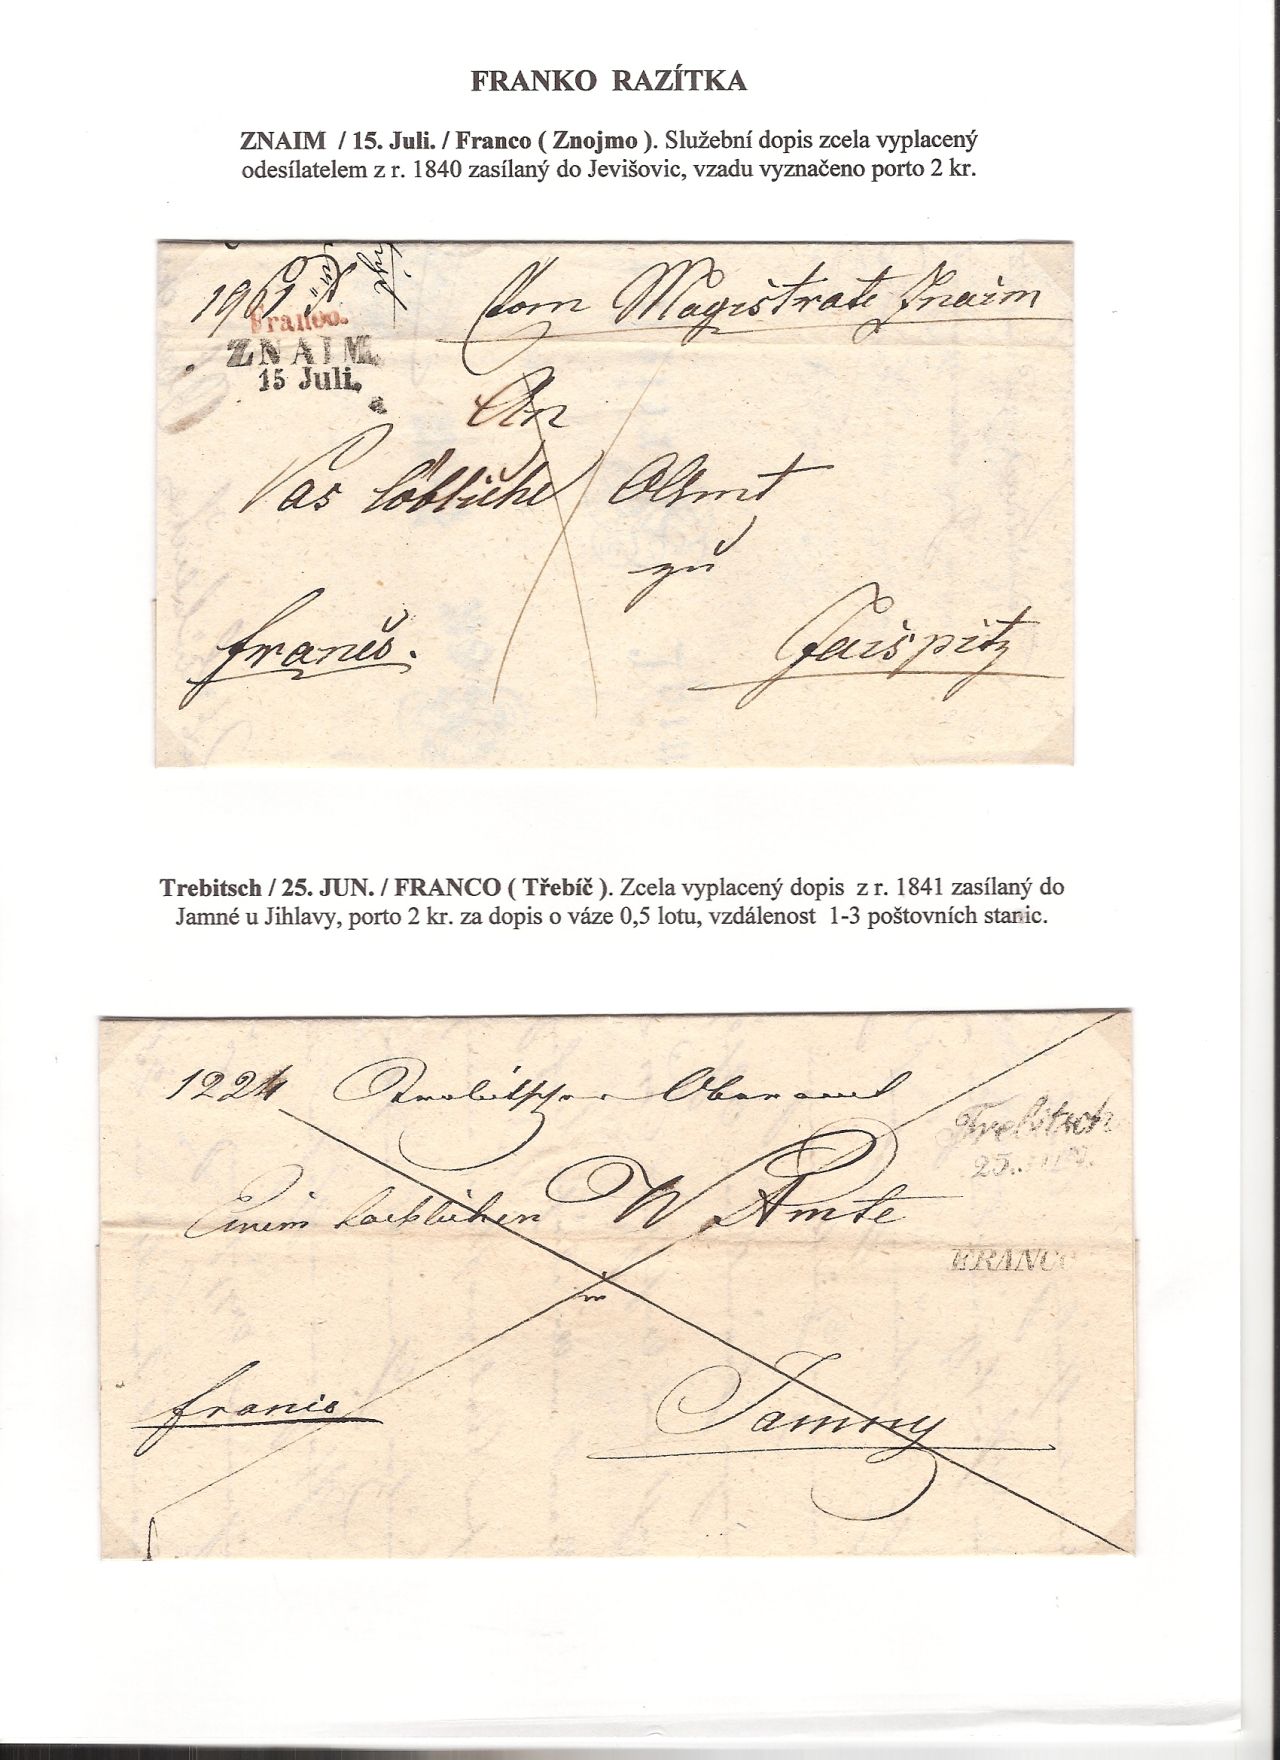 FRANKO RAZÍTKA
ZNAIM / 15. Juli. / Franco ( Znojmo ). Služební dopis zcela vyplacený
odesílatelem z r. 1840 zasílaný do Jevišovic, vzadu vyznačeno porto 2 kr.
Vom Magistrate Znaim
Franco.
ZNAIM.
15 Juli.
An
Das löbliche OAmt
zu
franco.
Jaispitz
Trebitsch / 25. JUN. / FRANCO ( Třebíč ). Zcela vyplacený dopis z r. 1841 zasílaný do
Jamné u Jihlavy, porto 2 kr. za dopis o váze 0,5 lotu, vzdálenost 1-3 poštovních stanic.
1224 Trebitscher Oberamt
Trebitsch
25. JUN.
Einem loeblichen W Amte
FRANCO
in
franco
Jamny